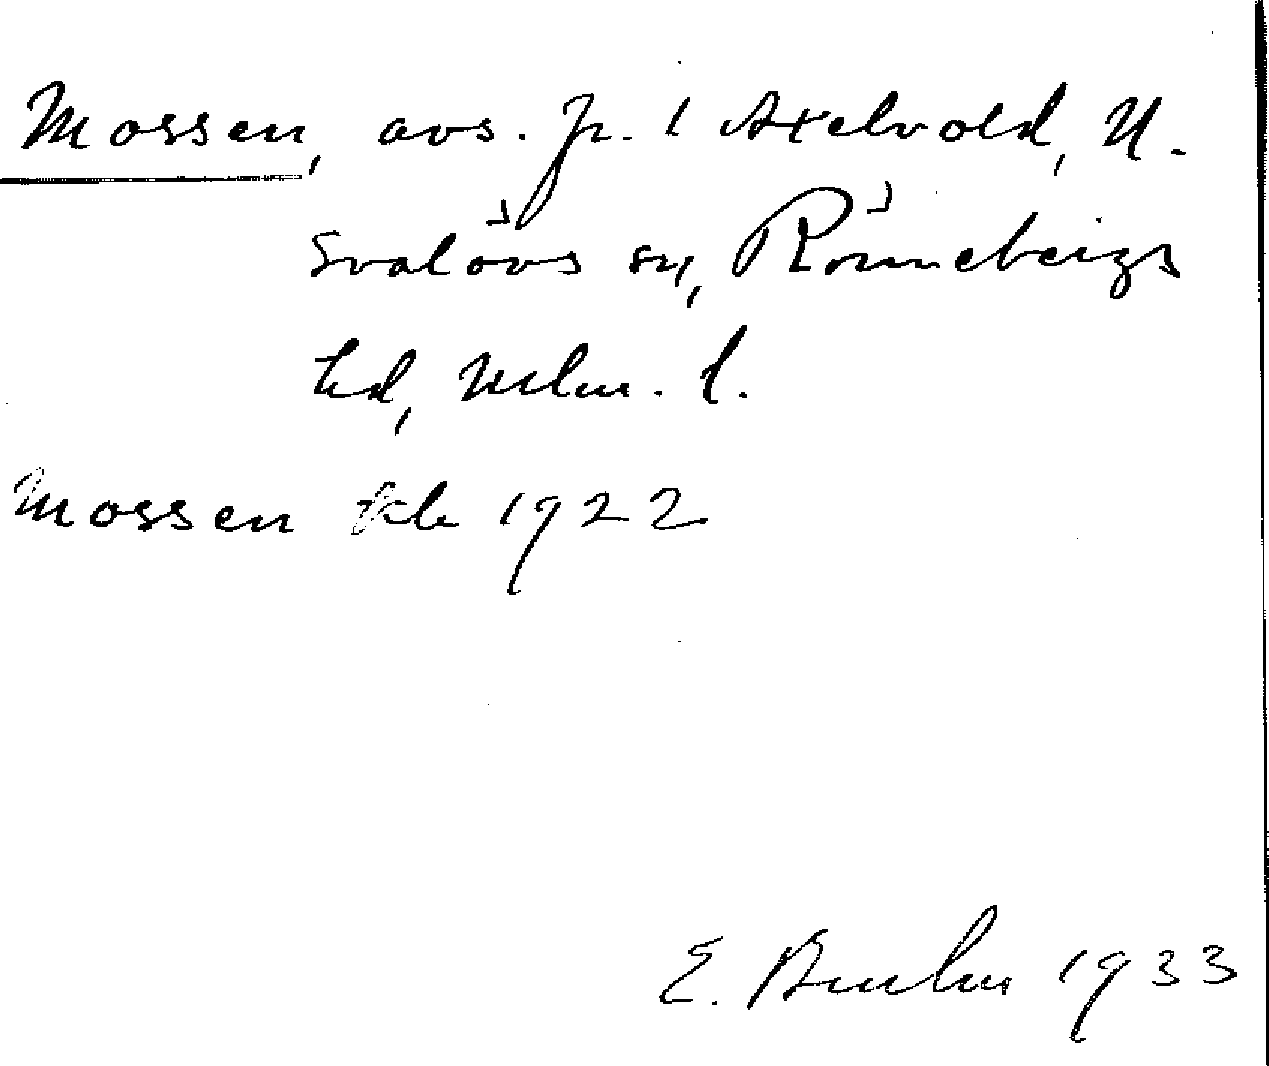 Mossen, avs. fr. 1 Axelvold, N.
Svalövs sn, Rönnebergs
hd, Mlm. l.
Mossen 1922
E. 1933